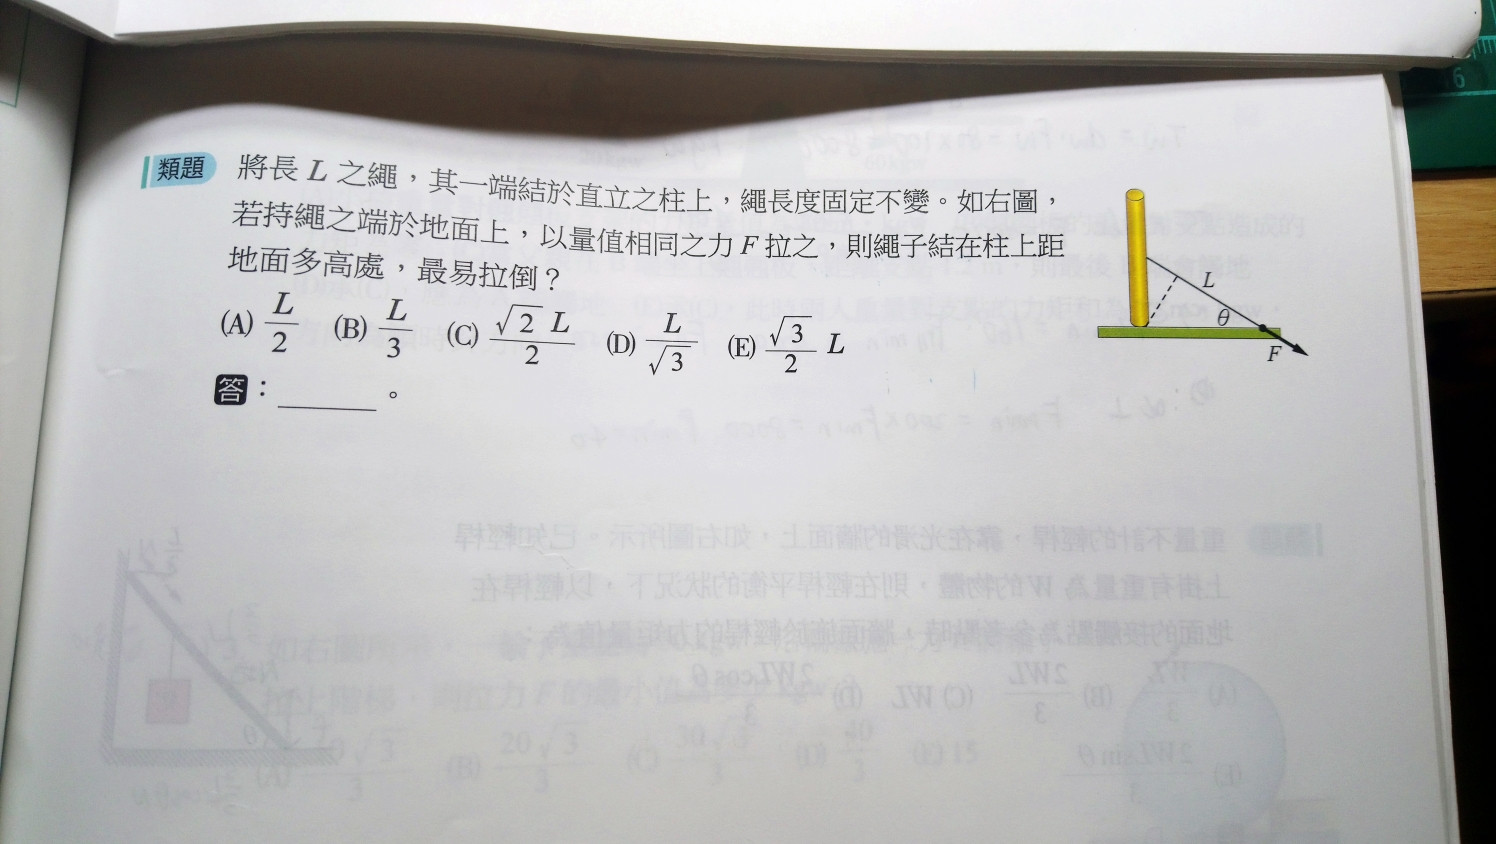 類題 將長 L 之繩，其一端結於直立之柱上，繩長度固定不變。如右圖，
若持繩之端於地面上，以量值相同之力 F 拉之，則繩子結在柱上距
地面多高處，最易拉倒？
(A) L/2 (B) L/3 (C) √2 L/2 (D) L/√3 (E) √3/2 L
答：______。
L
θ
F
6